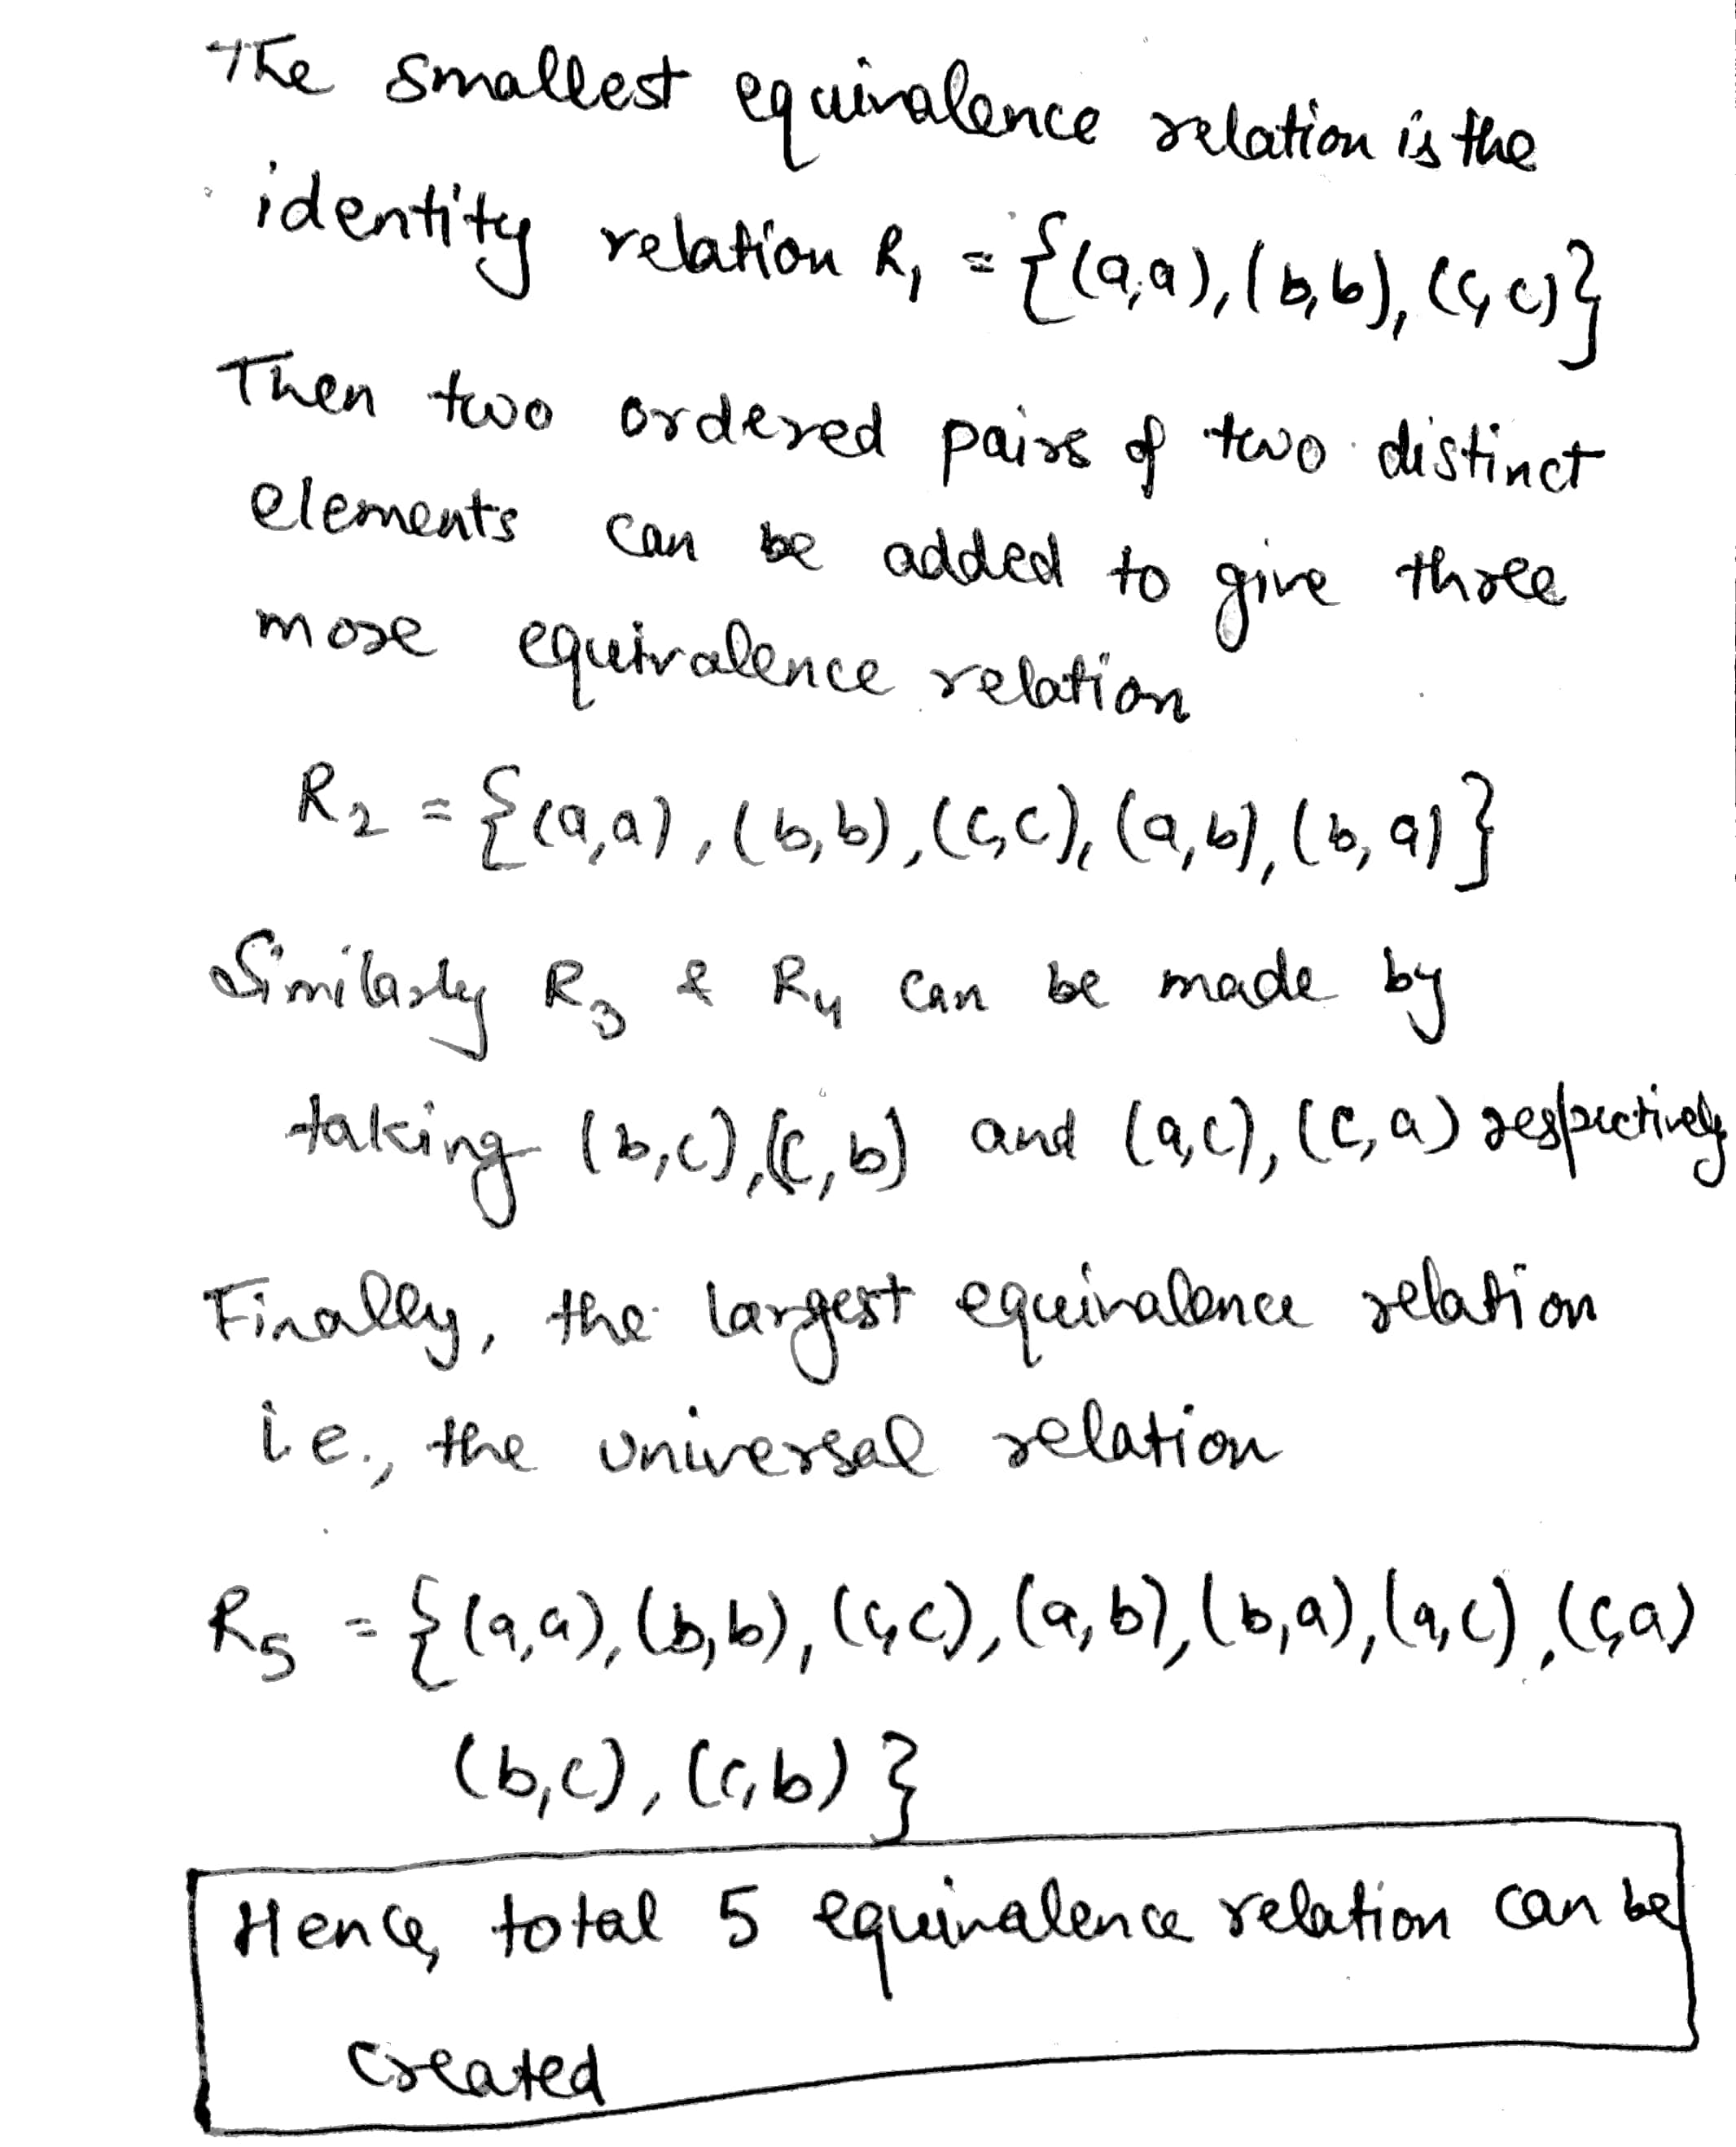 The smallest equivalence relation is the
identity relation R₁ = {(a,a), (b,b), (c,c)}
Then two ordered pairs of two distinct
elements can be added to give three
more equivalence relation
R₂ = {(a,a), (b,b), (c,c), (a,b), (b,a)}
Similarly R₃ & R₄ can be made by
taking (b,c), (c,b) and (a,c), (c,a) respectively
Finally, the largest equivalence relation
i.e., the universal relation
R₅ = {(a,a), (b,b), (c,c), (a,b), (b,a), (a,c), (c,a)
(b,c), (c,b)}
Hence, total 5 equivalence relation can be
created